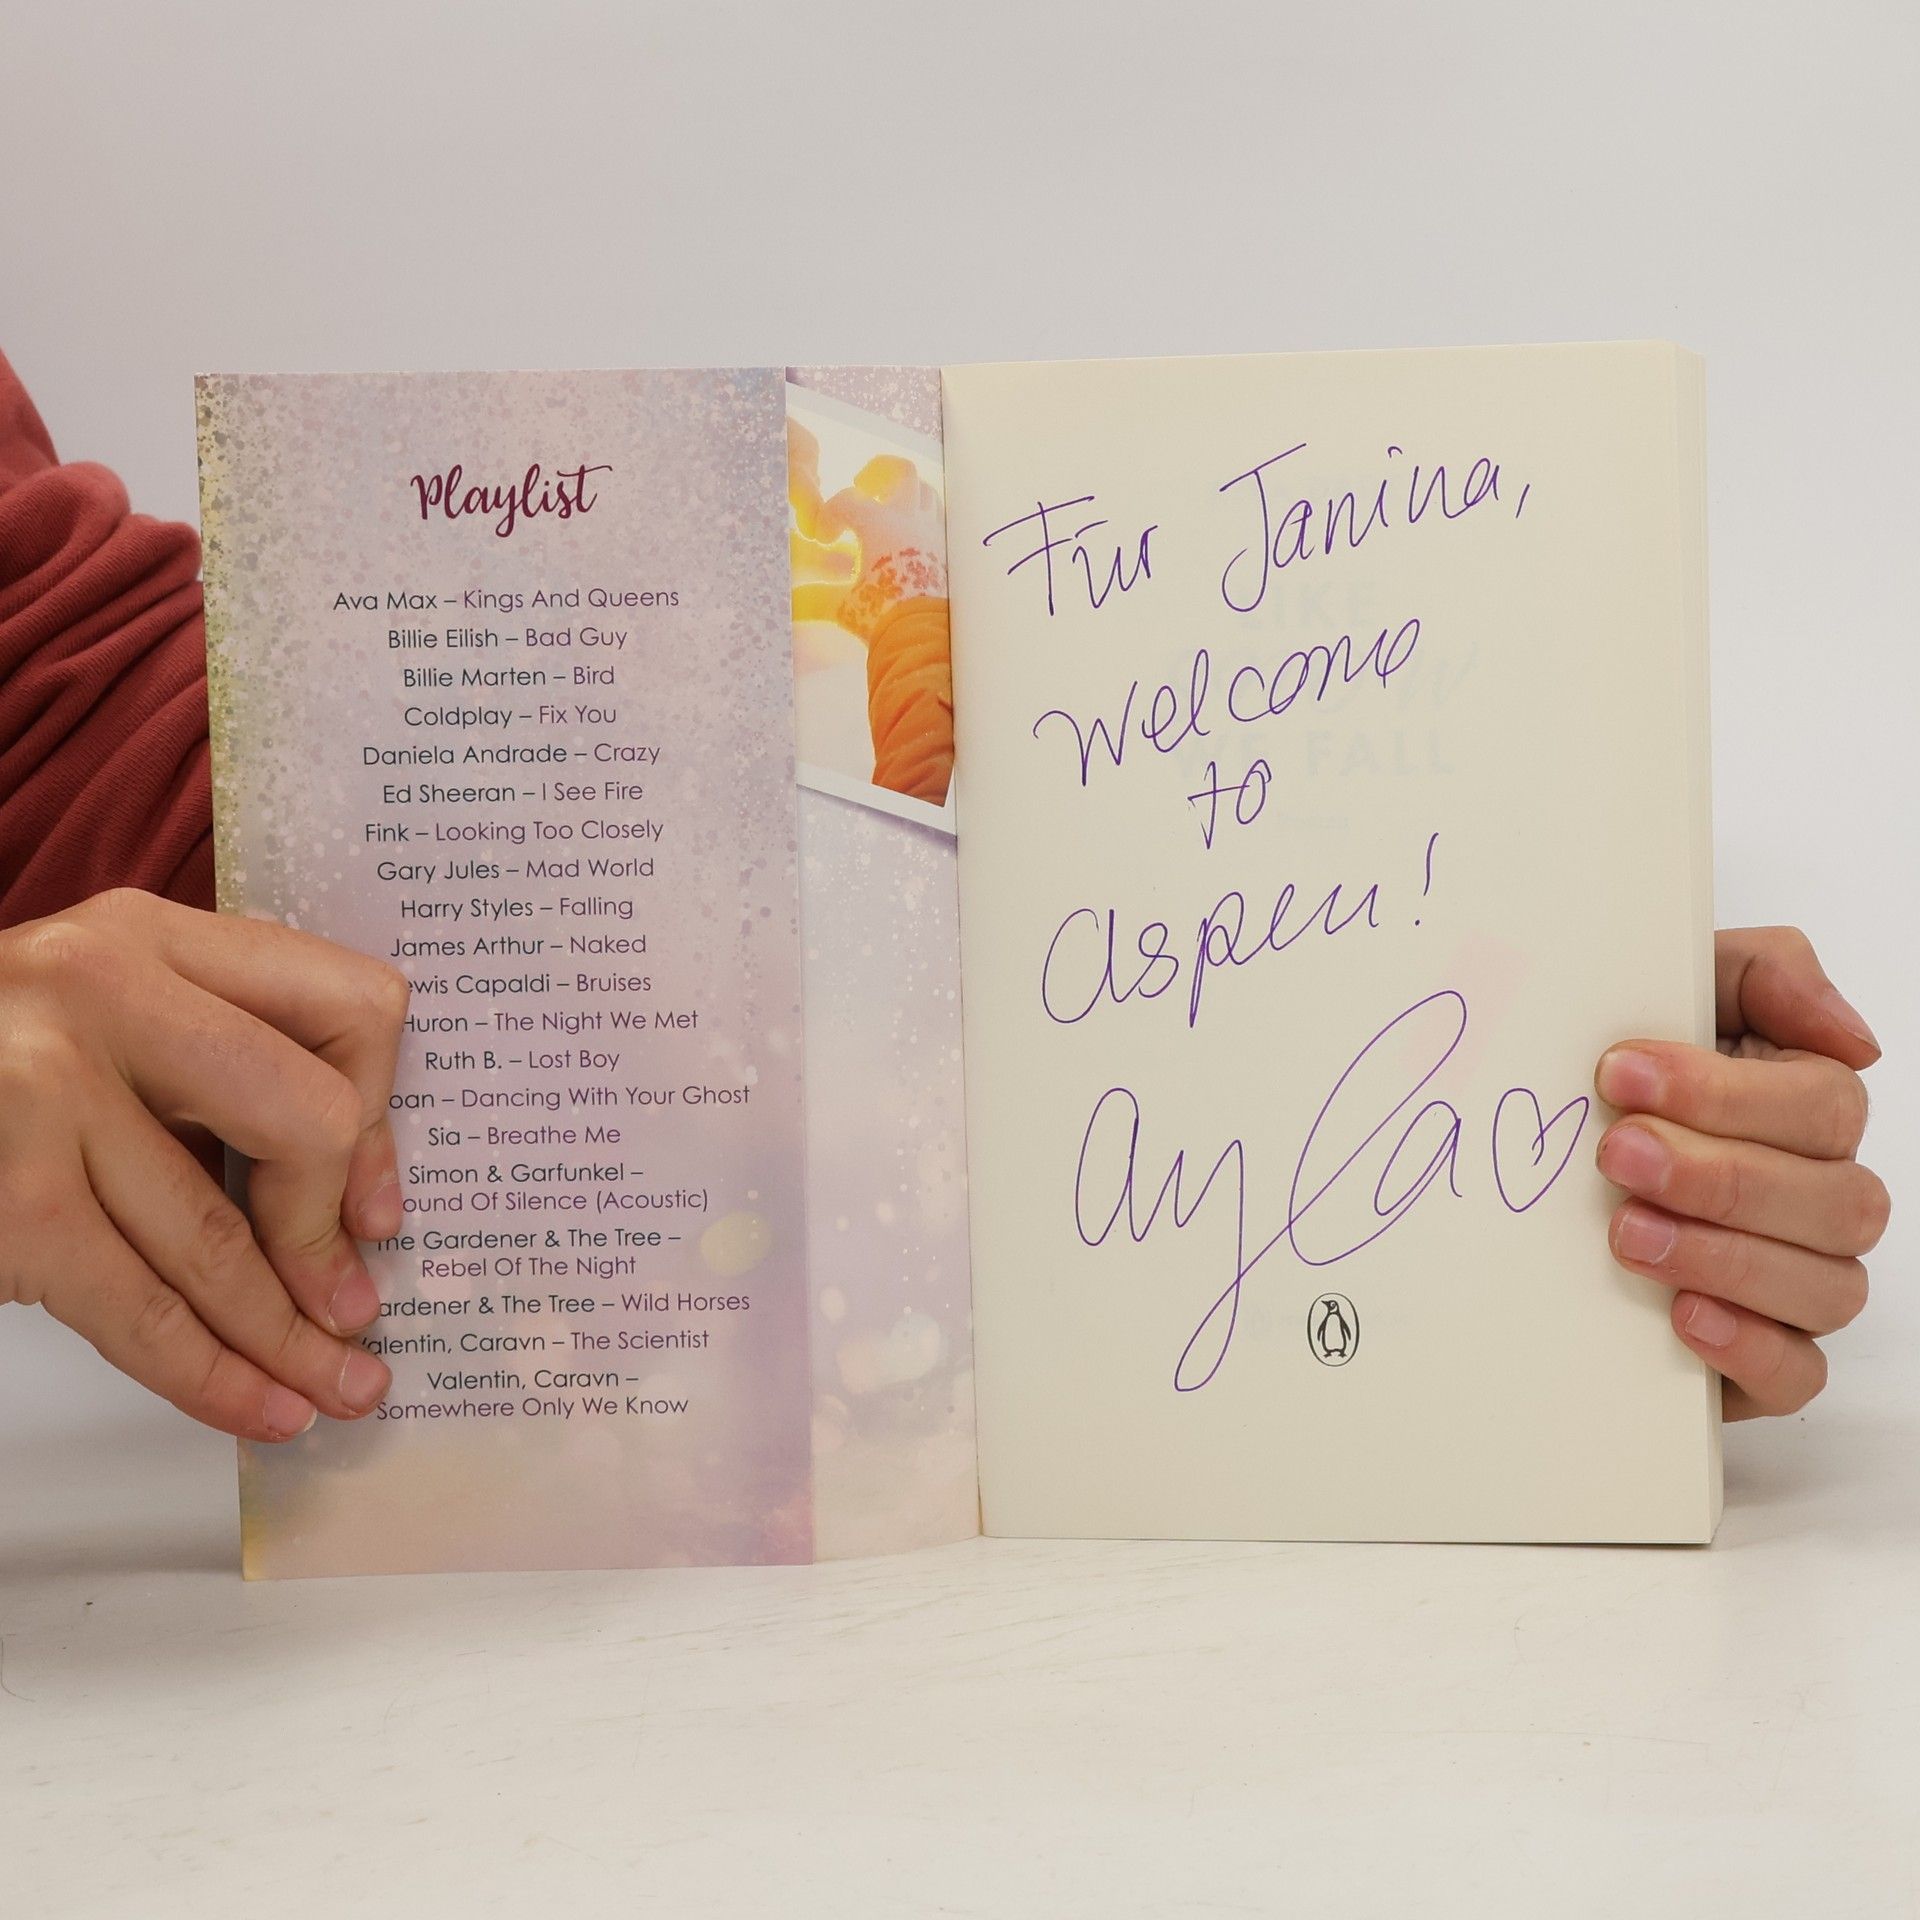 Playlist
Ava Max – Kings And Queens
Billie Eilish – Bad Guy
Billie Marten – Bird
Coldplay – Fix You
Daniela Andrade – Crazy
Ed Sheeran – I See Fire
Fink – Looking Too Closely
Gary Jules – Mad World
Harry Styles – Falling
James Arthur – Naked
ewis Capaldi – Bruises
Huron – The Night We Met
Ruth B. – Lost Boy
oan – Dancing With Your Ghost
Sia – Breathe Me
Simon & Garfunkel –
ound Of Silence (Acoustic)
The Gardener & The Tree –
Rebel Of The Night
ardener & The Tree – Wild Horses
Valentin, Caravn – The Scientist
Valentin, Caravn –
Somewhere Only We Know
Für Janina,
Welcome
to
Aspen!
Ayla
WE FALL